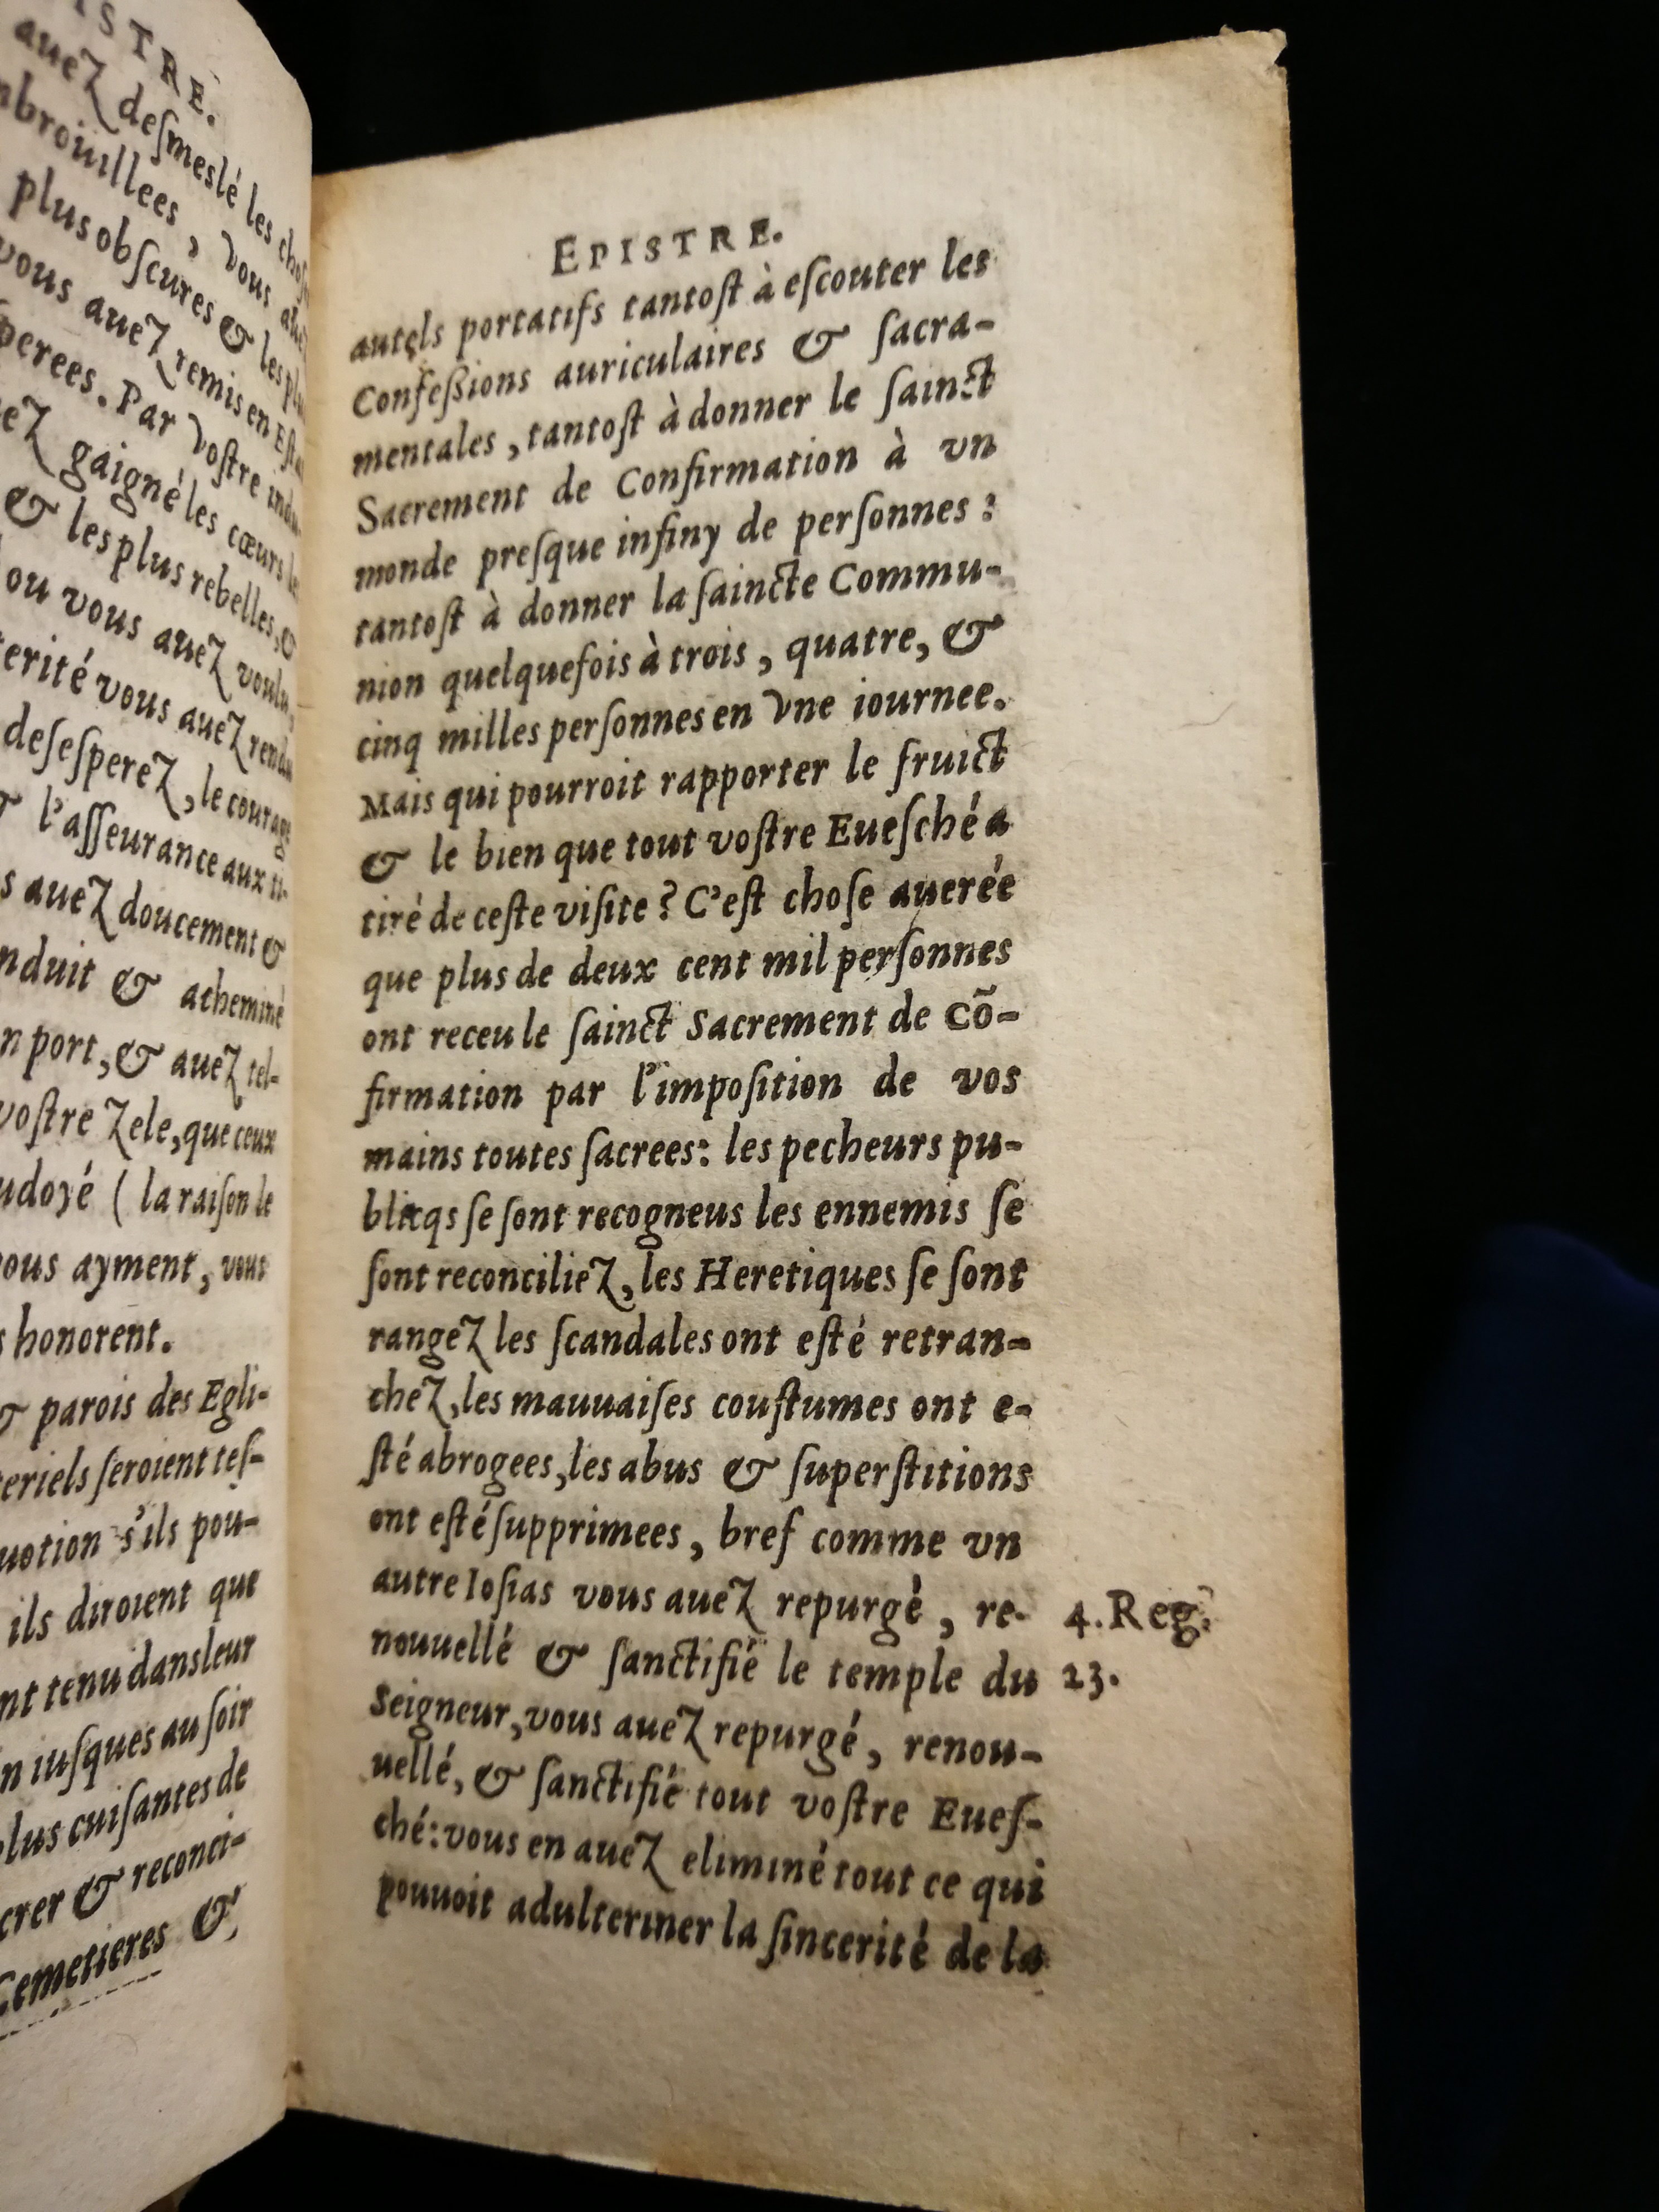 ISTRE.
auez desmeslé les
brouillees, vous
plus obscures & les
vous auez remis en
perees. Par vostre
ez gaigné les cœurs
& les plus rebelles, &
ou vous auez
erité vous auez
desesperez, le courage
l'asseurance aux
s auez doucement &
nduit & acheminé
n port, & auez tel-
vostre zele, que ceux
udoyé ( la raison le
ous ayment, vous
s honorent.
parois des Egli-
eriels seroient tes-
uotion s'ils pou-
ils diroient que
nt tenu dans leur
n iusques au soir
plus cuisantes de
crer & reconci-
Cemetieres &
EPISTRE.
autels portatifs tantost à escouter les
Confessions auriculaires & sacra-
mentales, tantost à donner le sainct
Sacrement de Confirmation à vn
monde presque infiny de personnes :
tantost à donner la saincte Commu-
nion quelquefois à trois, quatre, &
cinq milles personnes en vne iournee.
Mais qui pourroit rapporter le fruict
& le bien que tout vostre Euesché a
tiré de ceste visite ? C'est chose auerée
que plus de deux cent mil personnes
ont receu le sainct Sacrement de Cõ-
firmation par l'imposition de vos
mains toutes sacrees: les pecheurs pu-
blicqs se sont recogneus les ennemis se
sont reconciliez, les Heretiques se sont
rangez les scandales ont esté retran-
chez, les mauuaises coustumes ont e-
sté abrogees, les abus & superstitions
ont esté supprimees, bref comme vn
autre Iosias vous auez repurgé, re- 4. Reg.
nouuellé & sanctifié le temple du 23.
Seigneur, vous auez repurgé, renou-
uellé, & sanctifié tout vostre Eues-
ché: vous en auez eliminé tout ce qui
pouuoit adulteriner la sincerité de la